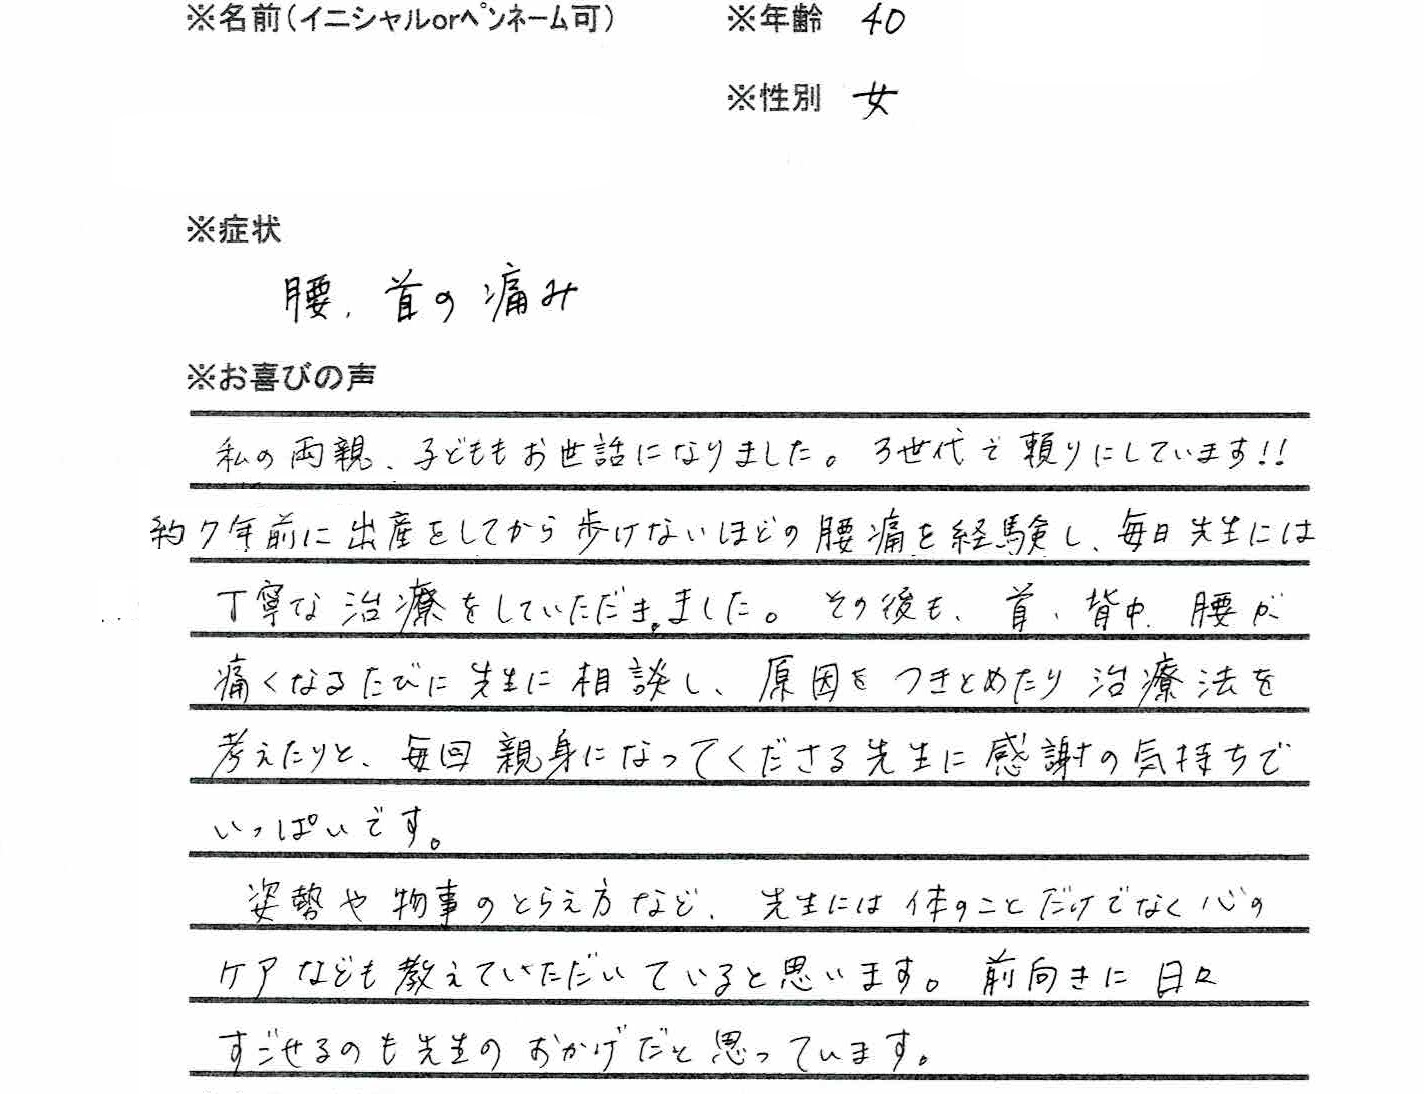 ※名前（イニシャルorペンネーム可） ※年齢 40
※性別 女
※症状
腰、首の痛み
※お喜びの声
私の両親、子どももお世話になりました。3世代で頼りにしています!!
約7年前に出産をしてから歩けないほどの腰痛を経験し、毎日先生には
丁寧な治療をしていただきました。その後も、首、背中、腰が
痛くなるたびに先生に相談し、原因をつきとめたり治療法を
考えたりと、毎回親身になってくださる先生に感謝の気持ちで
いっぱいです。
姿勢や物事のとらえ方など、先生には体のことだけでなく心の
ケアなども教えていただいていると思います。前向きに日々
すごせるのも先生のおかげだと思っています。